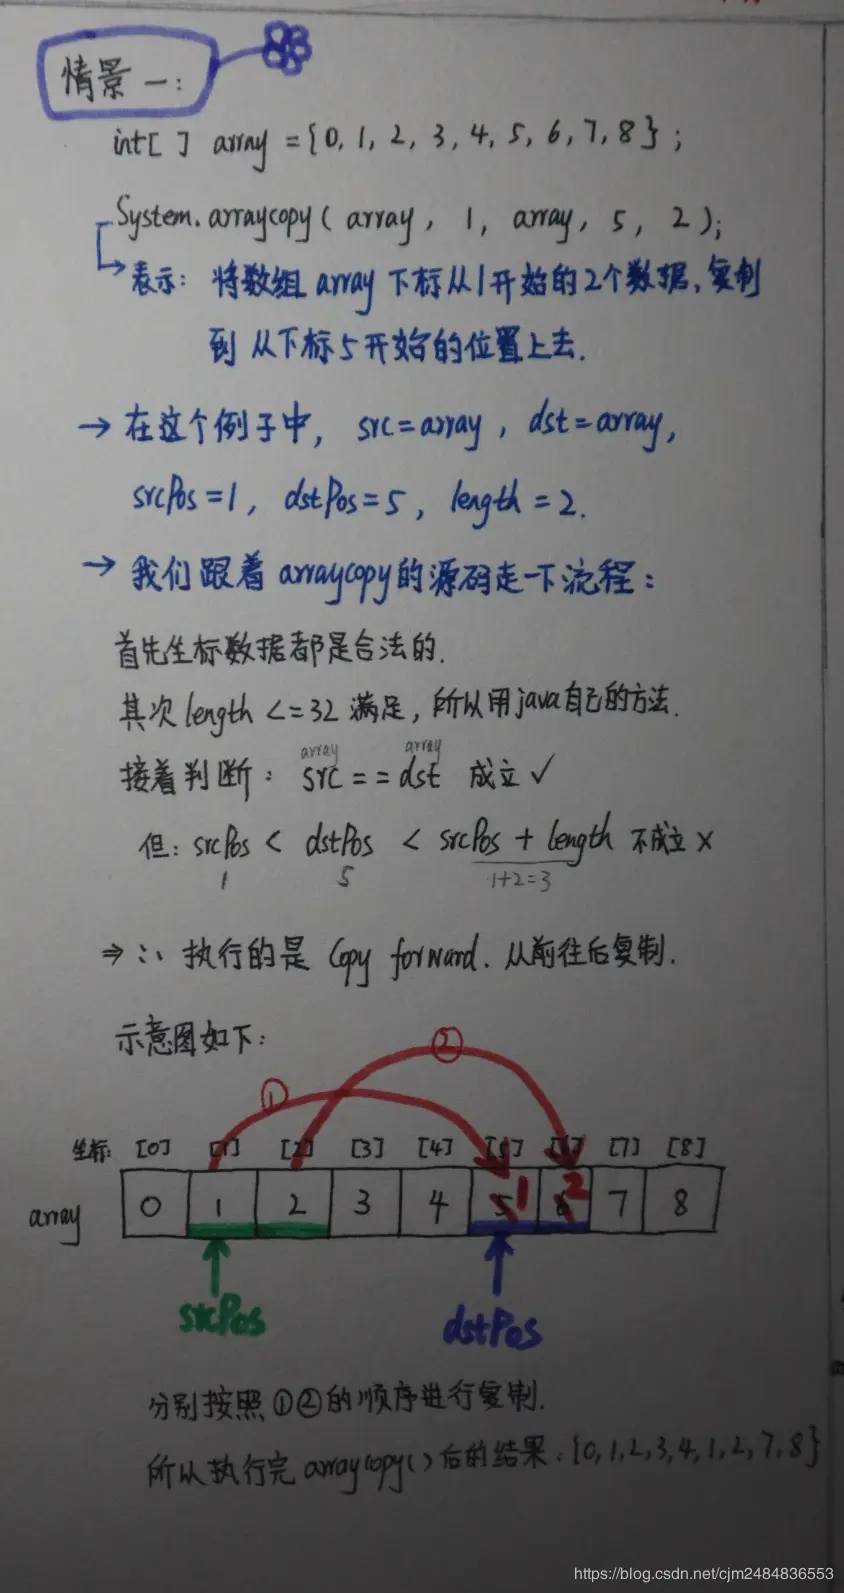 情景一:
int[ ] array = {0, 1, 2, 3, 4, 5, 6, 7, 8};
System.arraycopy( array, 1, array, 5, 2 );
表示: 将数组 array 下标从1开始的2个数据,复制
到 从下标5开始的位置上去.
→ 在这个例子中, src=array, dst=array,
srcPos=1, dstPos=5, length=2.
→ 我们跟着 arraycopy的源码走一下流程:
首先坐标数据都是合法的.
其次 length <=32 满足, 所以用java自己的方法.
array array
接着判断: src == dst 成立 ✓
但: srcPos < dstPos < srcPos + length 不成立 ×
1 5 1+2=3
⇒ ∴ 执行的是 Copy forward. 从前往后复制.
示意图如下:
① ②
坐标: [0] [1] [2] [3] [4] [5] [6] [7] [8]
array 0 1 2 3 4 5 1 6 2 7 8
srcPos dstPos
分别按照①②的顺序进行复制.
所以执行完 arraycopy() 后的结果: {0,1,2,3,4,1,2,7,8}
https://blog.csdn.net/cjm2484836553